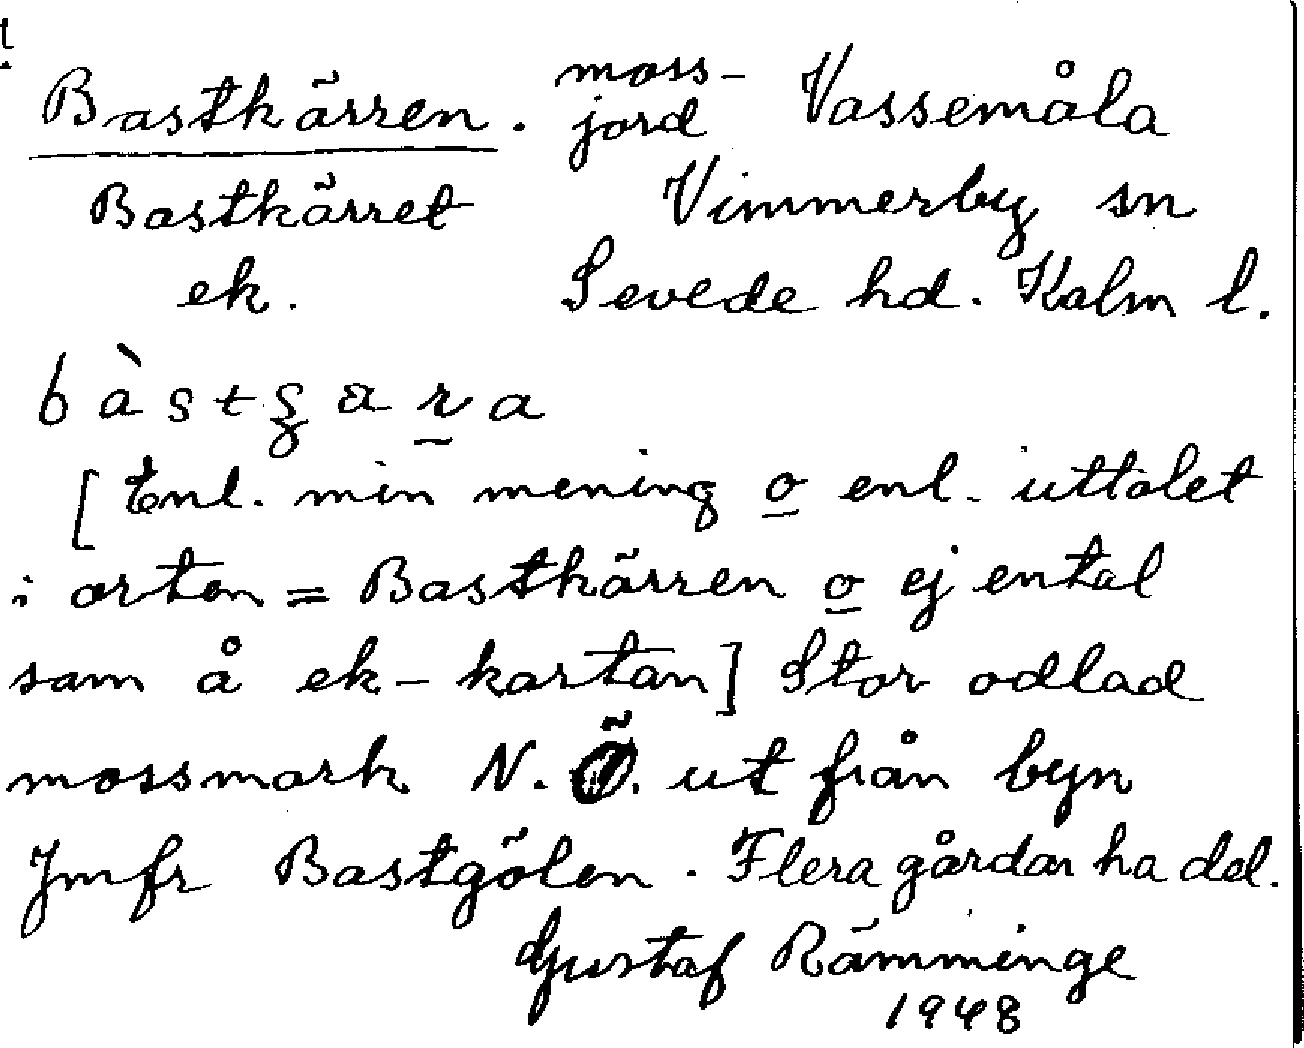 Bastkärren. moss-jord Vassemåla
Bastkärret Vimmerby sn
ek. Sevede hd. Kalm l.
[Enl. min mening o enl. uttalet
i orten = Bastkärren o ej ental
som å ek-kartan] Stor odlad
mossmark N.Ö. ut från byn
Jmfr Bastgölen. Flera gårdar ha del.
Gustaf Rämminge
1948